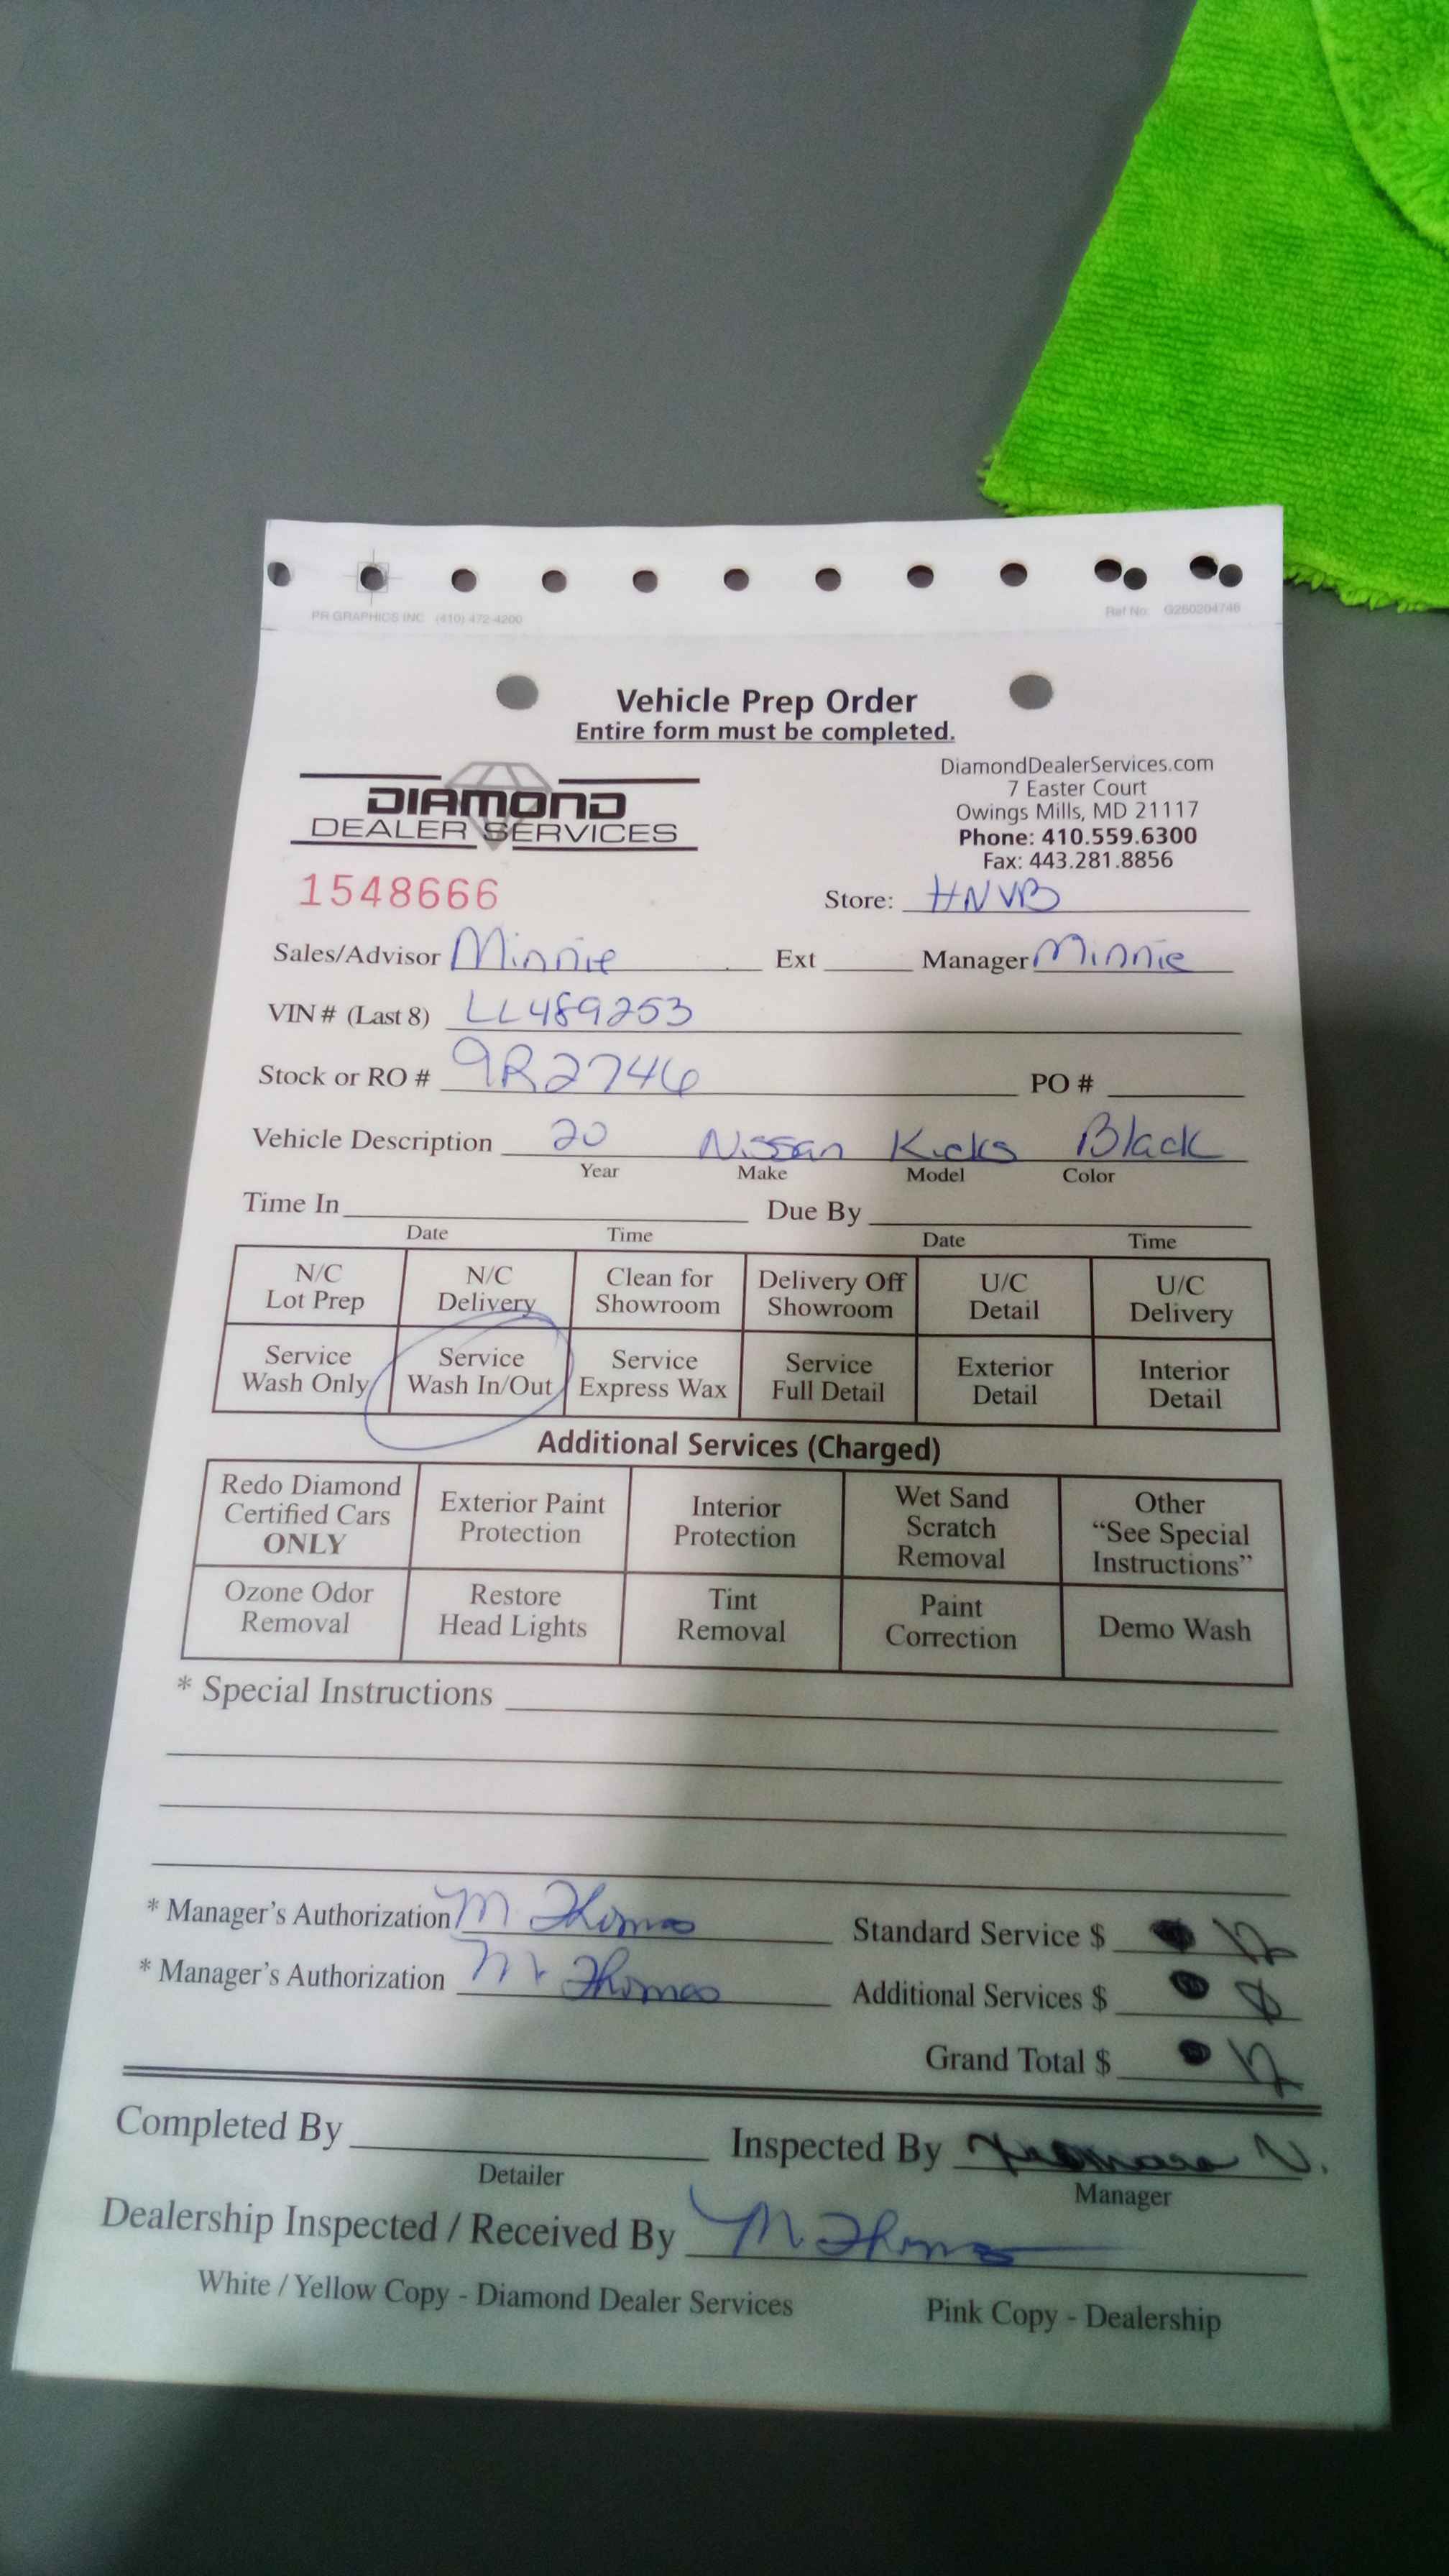 PR GRAPHICS INC (410) 472-4200 Ref No: G260204746
Vehicle Prep Order
Entire form must be completed.
DIAMOND
DEALER SERVICES
DiamondDealerServices.com
7 Easter Court
Owings Mills, MD 21117
Phone: 410.559.6300
Fax: 443.281.8856
1548666 Store: HNVB
Sales/Advisor Minnie Ext Manager Minnie
VIN # (Last 8) LL489253
Stock or RO # 9R2746 PO #
Vehicle Description 20 Nissan Kicks Black
Year Make Model Color
Time In Due By
Date Time Date Time
N/C Lot Prep N/C Delivery Clean for Showroom Delivery Off Showroom U/C Detail U/C Delivery
Service Wash Only Service Wash In/Out Service Express Wax Service Full Detail Exterior Detail Interior Detail
Additional Services (Charged)
Redo Diamond Certified Cars ONLY Exterior Paint Protection Interior Protection Wet Sand Scratch Removal Other “See Special Instructions”
Ozone Odor Removal Restore Head Lights Tint Removal Paint Correction Demo Wash
* Special Instructions
* Manager's Authorization M Thomas Standard Service $
* Manager's Authorization M Thomas Additional Services $
Grand Total $
Completed By Inspected By
Detailer Manager
Dealership Inspected / Received By M Thomas
White / Yellow Copy - Diamond Dealer Services Pink Copy - Dealership